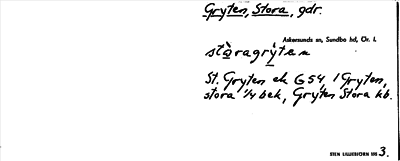 Gryten, Stora, gdr.
Askersunds sn, Sundbo hd, Ör. l.
stòragrỳten
St. Gryten ek G 54, 1 Gryten,
stora 1/4 bek, Gryten Stora kb.
STEN LILLIEBJÖRN 195 3.